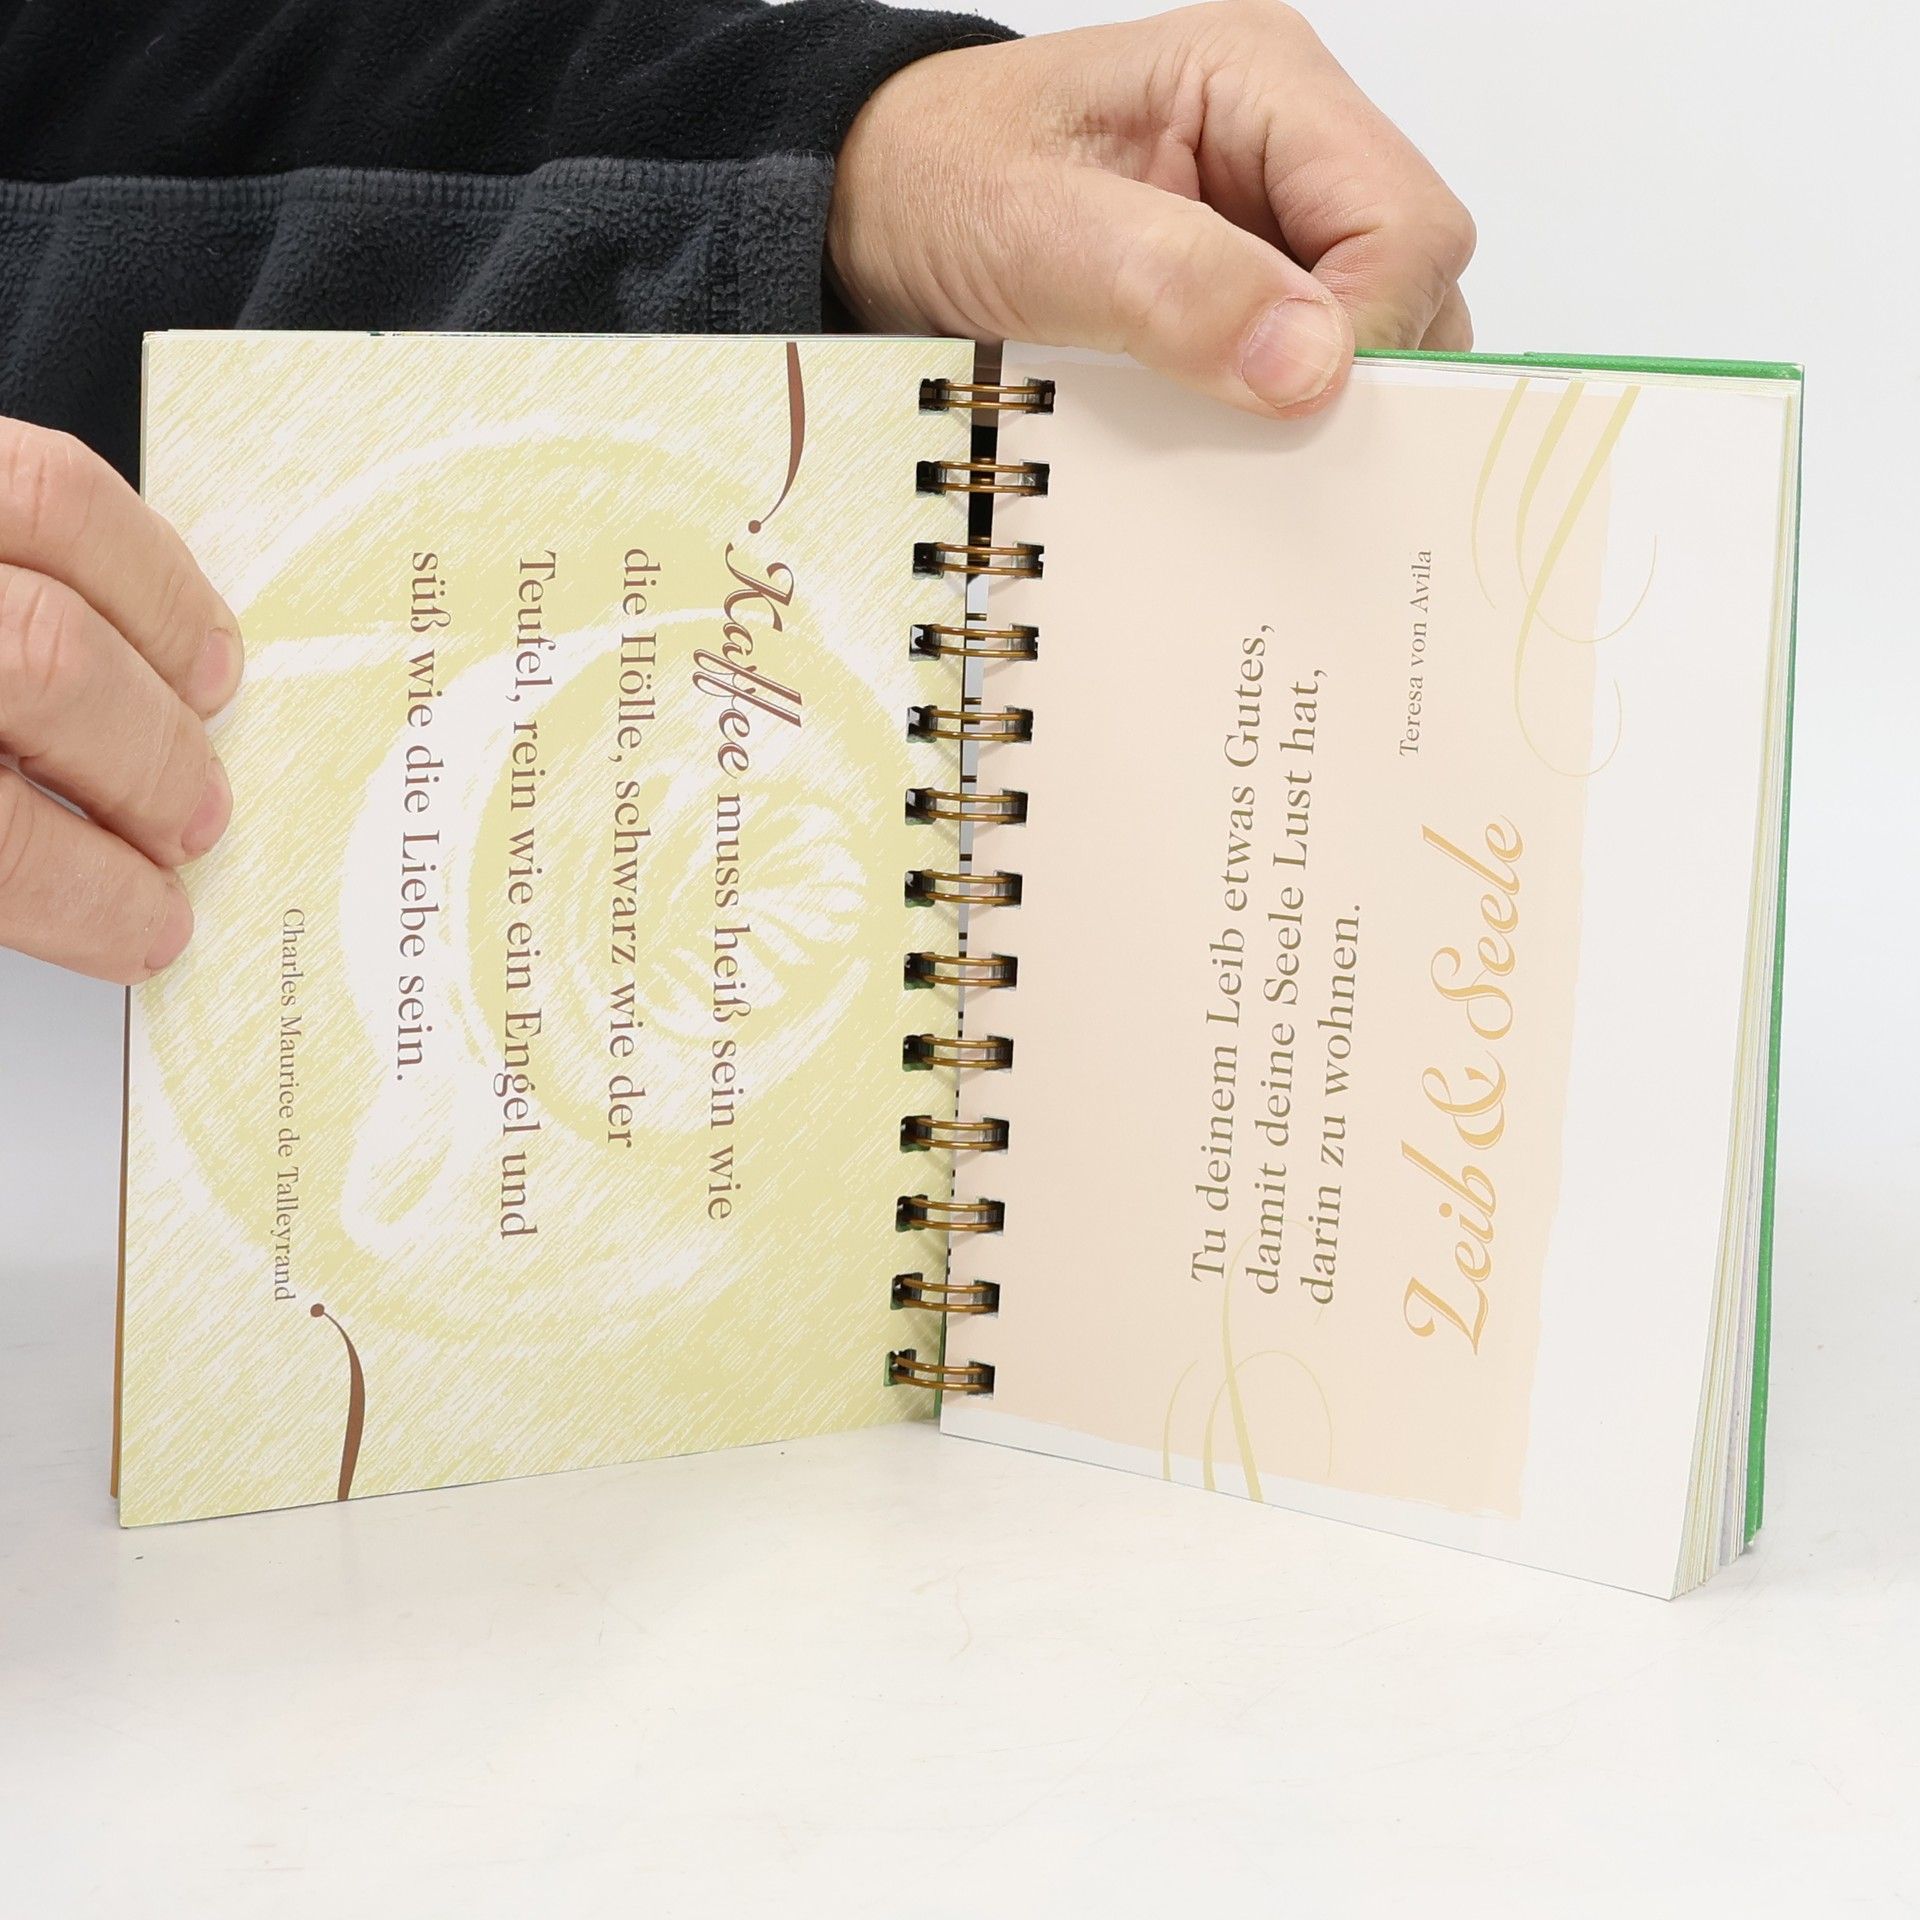 Kaffee muss heiß sein wie
die Hölle, schwarz wie der
Teufel, rein wie ein Engel und
süß wie die Liebe sein.
Charles Maurice de Talleyrand
Tu deinem Leib etwas Gutes,
damit deine Seele Lust hat,
darin zu wohnen.
Teresa von Avila
Leib & Seele